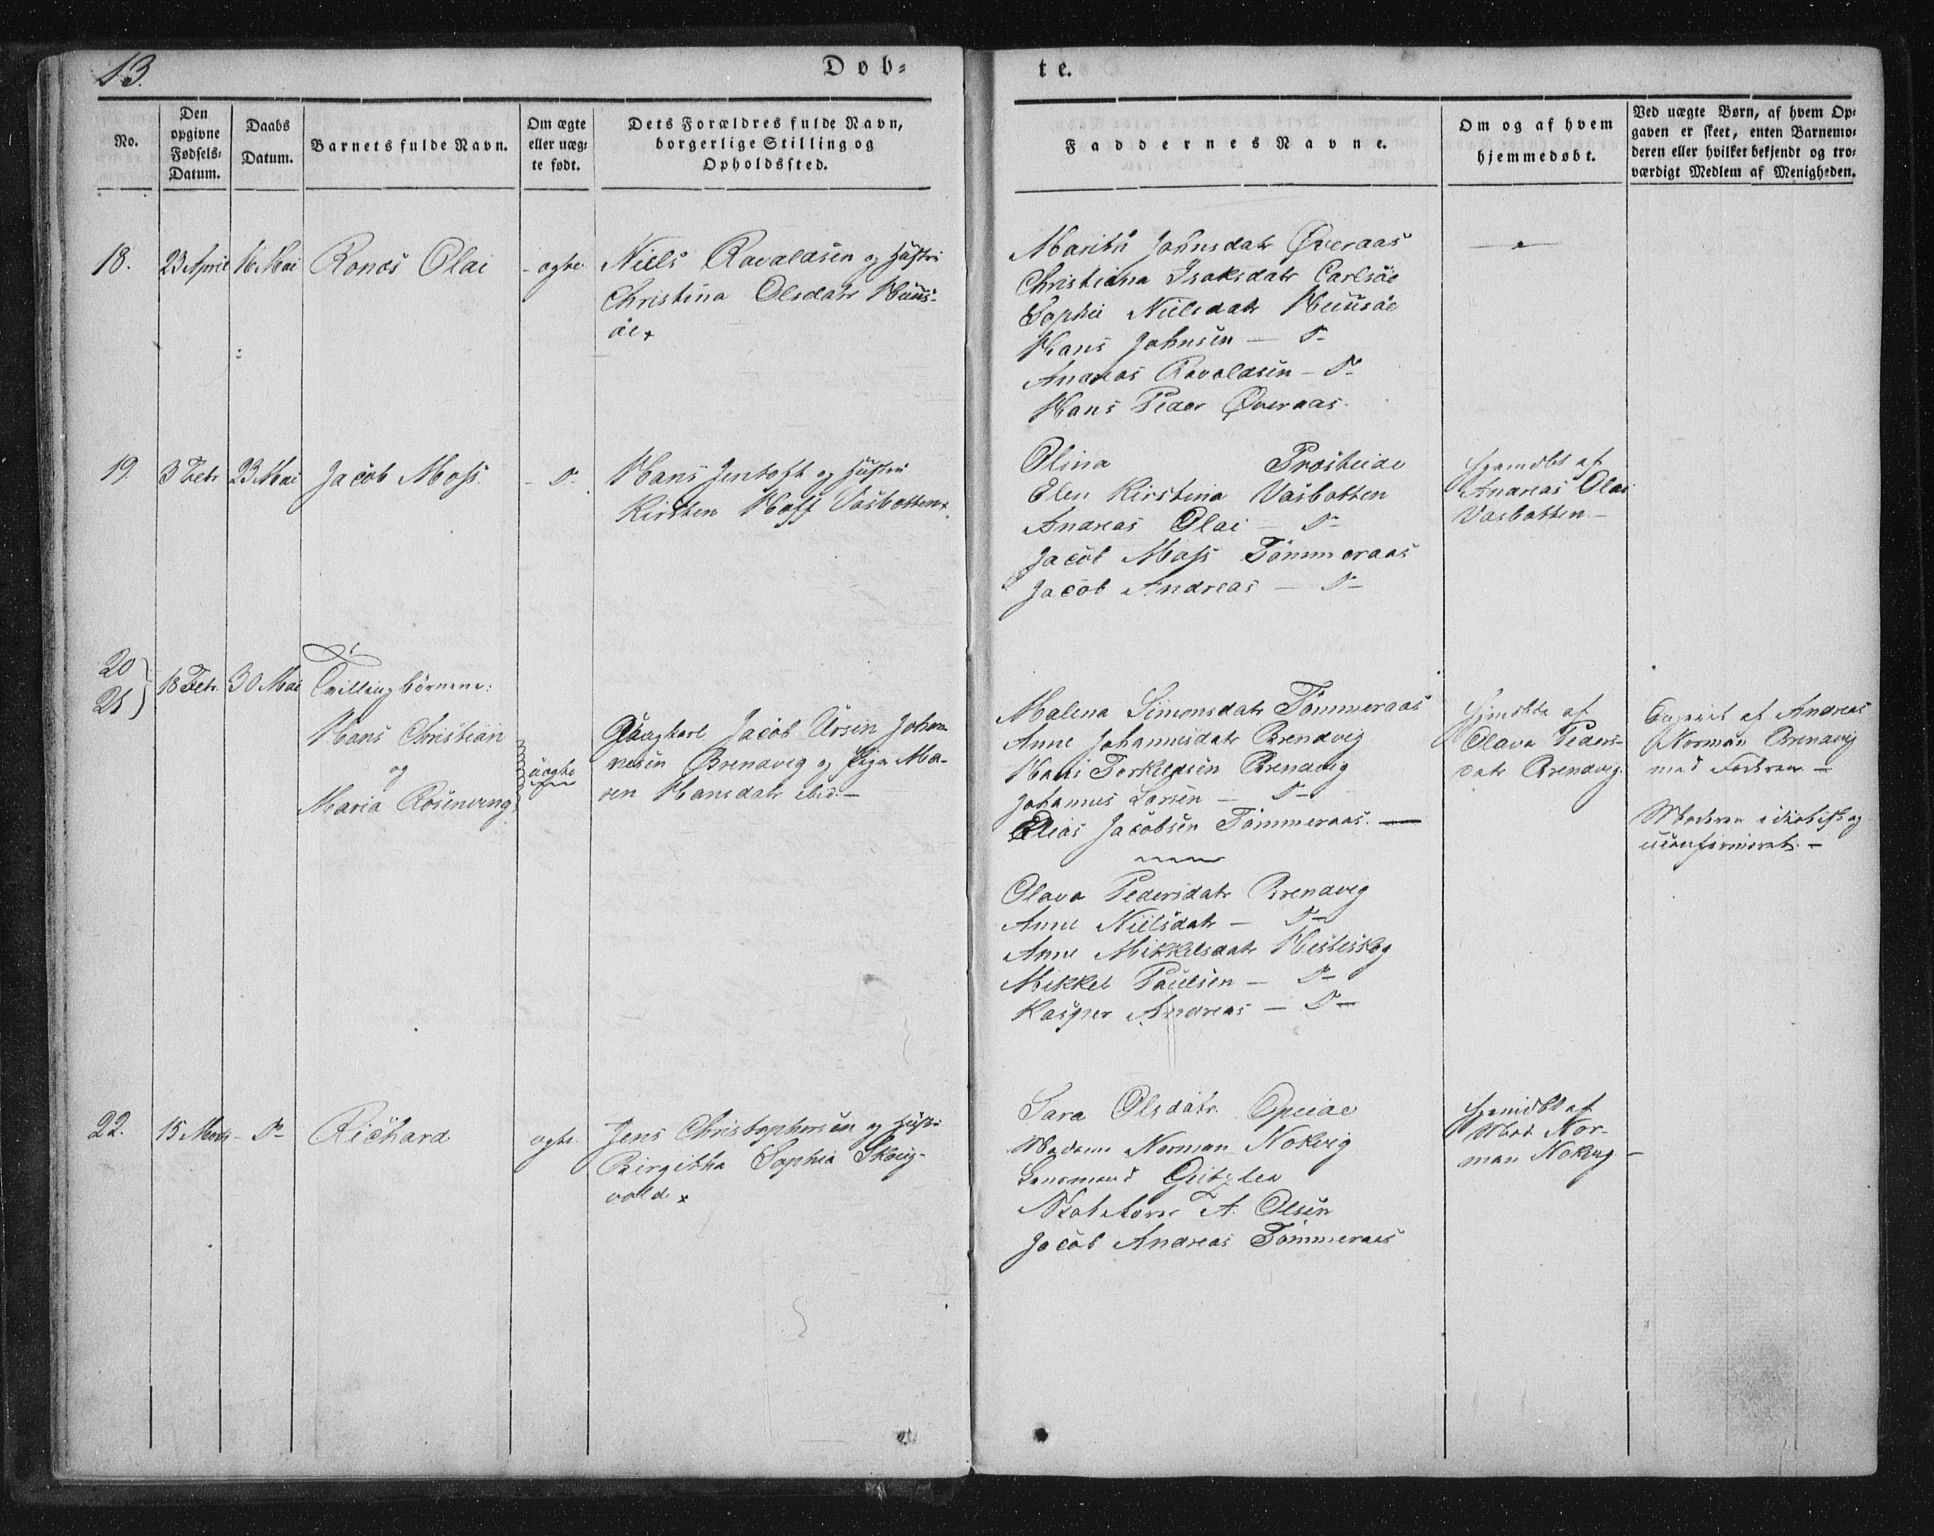 13.
Døb-
te.
No.
Den opgivne Fødsels-Datum.
Daabs Datum.
Barnets fulde Navn.
Om ægte eller uæg-te født.
Dets Forældres fulde Navn, borgerlige Stilling og Opholdssted.
Faddernes Navne.
Om og af hvem hjemmedøbt.
Ved uægte Børn, af hvem Op-gaven er skeet, enten Barnemo-deren eller hvilket bekjendt og tro-værdigt Medlem af Menigheden.
18.
23 April
16 Mai
Olai
- ægte
Niels Ravaldsen og Hustru
Christina Olsdatr Huus-
öe
Christiana Isaksdatr Carlsöe
Sophie Nielsdatr Huusöe
Hans Johnsen — D-
Andreas Ravaldsen - D-
Hans Peder Øveraas.
Johnsdatr Øveraas
19.
3 Febr
23 Mai
Jacob Moss.
- D-
Hans Jentoft og Hustru
Kirsten Hoff Vasbotten
Olina
Elen Kirstina Vasbotten
Andreas Olai - D-
Jacob Moss Tömmeraas
Jacob Andreas - D-
Hjemdbt af
Andreas Olai
Vasbotten -
20
21
18 Febr
30 Mai
Tvillingbörnene:
Hans Christian
og
Maria Rosenving
uægte
Ungkarl Jacob Ursin Johan-
nesen Brendvig og Pige Ma-
ren Hansdatr ibid. -
Malena Simonsdatr Tömmeraas
Anne Johannesdatr Brendvig
Hans Terkeldsen Brendvig
Johannes Larsen - D-
Elias Jacobsen Tömmeraas. —
Olava Pedersdatr Brendvig
Anne Nielsdatr - D-
Anne Mikkelsdatr Hesteskog
Mikkel Paulsen - D-
Kasper Andreas - D-
Hjemdbte af
Olava Peders-
datr Brendvig.
Opgivet af Andreas
Norman Brendvig
med Faderen -
Moderen idiotisk og
uconfirmeret. -
22.
15 Marts
- D-
Richard
ægte
Jens Christophersen og Hustru
Birgitha Sophia Skvig-
vold
Sara Olsdatr
Madame Norman Nokvig
Lensmand
A. Olsen
Jacob Andreas Tömmeraas
Hjemdbt af
Mad. Nor-
man Nokvig -